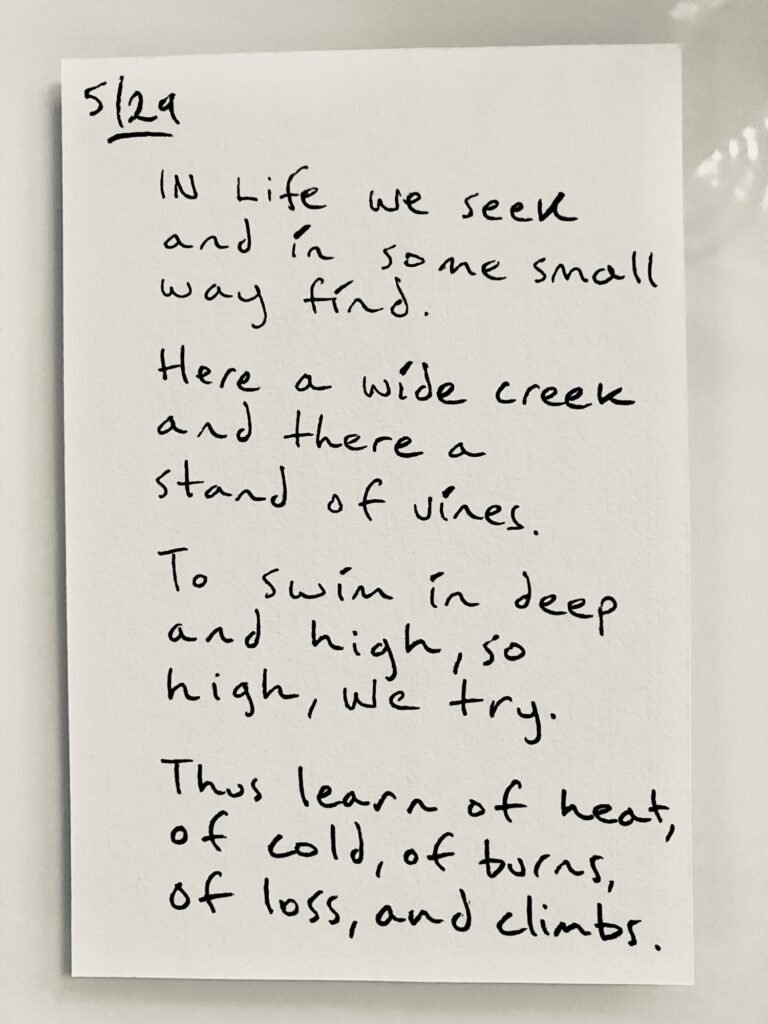 5/29
IN Life we seek
and in some small
way find.
Here a wide creek
and there a
stand of vines.
To swim in deep
and high, so
high, we try.
Thus learn of heat,
of cold, of burns,
of loss, and climbs.